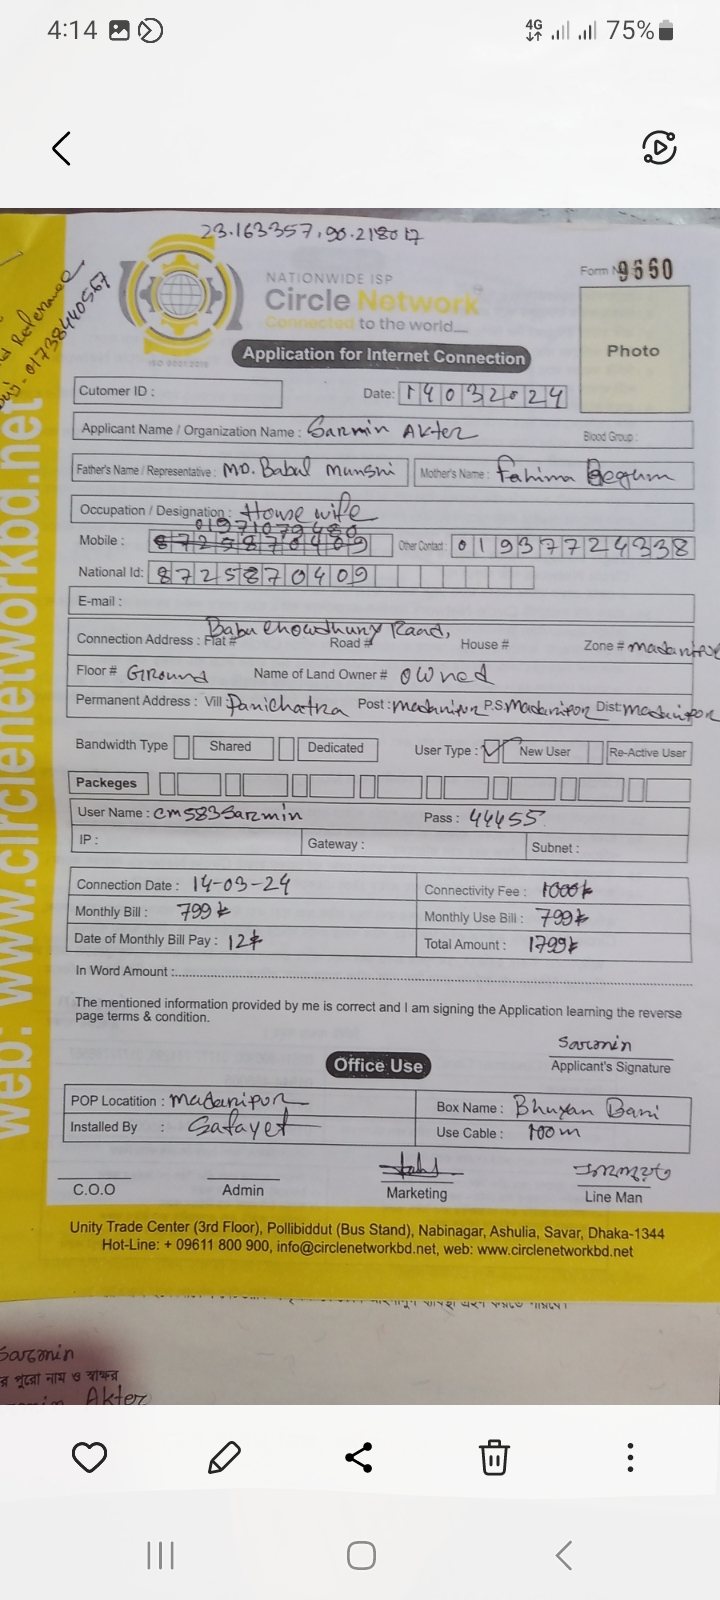 4:14 4G 75%
23.163357, 90.218017
NATIONWIDE ISP
Circle Network
Connected to the world...
ISO 9001:2015
Form N 9660
Photo
Reference
01738440567
Application for Internet Connection
Cutomer ID : Date: 14032024
Applicant Name / Organization Name : Sarmin Akter Blood Group :
Father's Name / Representative : MD. Babul Munshi Mother's Name : Fahima Begum
Occupation / Designation : House wife
01971079480
Mobile : 8725870409 Other Contact : 01937724338
National Id: 8725870409
E-mail :
Babu Chowdhury Raad,
Connection Address : Flat # Road # House # Zone # madaripor
Floor # Ground Name of Land Owner # owned
Permanent Address : Vill Panichatra Post: madaripur P.S. Madaripor Dist: madaripor
Bandwidth Type Shared Dedicated User Type : New User Re-Active User
Packeges
User Name : cm583sarmin Pass : 44455
IP : Gateway : Subnet :
Connection Date : 14-03-24 Connectivity Fee : 1000৳
Monthly Bill : 799৳ Monthly Use Bill : 799৳
Date of Monthly Bill Pay : 12 Total Amount : 1799৳
In Word Amount :
The mentioned information provided by me is correct and I am signing the Application learning the reverse
page terms & condition.
Sarmin
Applicant's Signature
Office Use
POP Locatition : madaripur Box Name : Bhuyan Bari
Installed By : Safayet Use Cable : 100m
C.O.O Admin Marketing Line Man
Unity Trade Center (3rd Floor), Pollibiddut (Bus Stand), Nabinagar, Ashulia, Savar, Dhaka-1344
Hot-Line: + 09611 800 900, info@circlenetworkbd.net, web: www.circlenetworkbd.net
web: www.circlenetworkbd.net
Sarmin
র পুরো নাম ও স্বাক্ষর
Akter